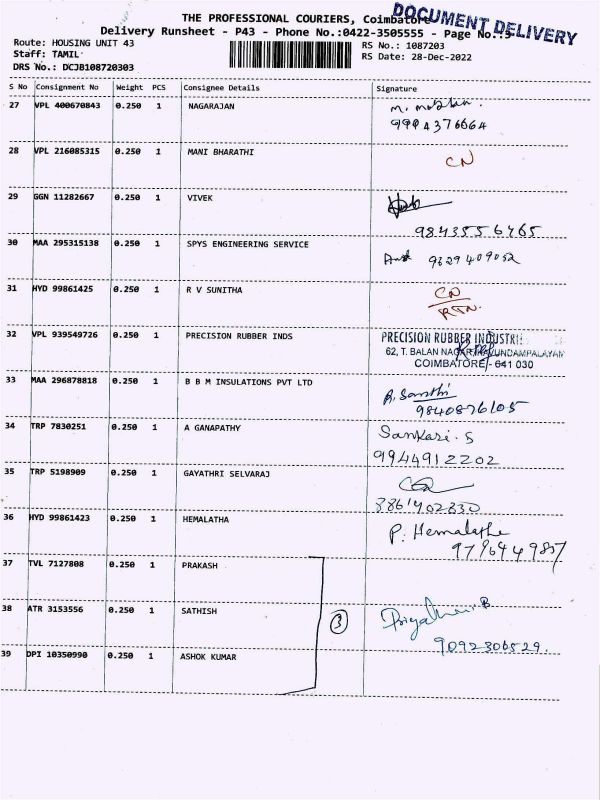 THE PROFESSIONAL COURIERS, Coimbatore
DOCUMENT DELIVERY
Delivery Runsheet - P43 - Phone No.:0422-3505555 - Page No.:3
Route: HOUSING UNIT 43
RS No.: 1087203
Staff: TAMIL
RS Date: 28-Dec-2022
DRS No.: DCJB108720303
S No Consignment No Weight PCS Consignee Details Signature
27 VPL 400670843 0.250 1 NAGARAJAN
9994376664
28 VPL 216085315 0.250 1 MANI BHARATHI CN
29 GGN 11282667 0.250 1 VIVEK
9843556465
30 MAA 295315138 0.250 1 SPYS ENGINEERING SERVICE 9629409052
31 HYD 99861425 0.250 1 R V SUNITHA CN
RTN.
32 VPL 939549726 0.250 1 PRECISION RUBBER INDS PRECISION RUBBER INDUSTRI
62, T. BALAN NAGAR,
COIMBATORE - 641 030
33 MAA 296878818 0.250 1 B B M INSULATIONS PVT LTD
R. Santhi
9840876105
34 TRP 7830251 0.250 1 A GANAPATHY Sankari. S
9944912202
35 TRP 5198909 0.250 1 GAYATHRI SELVARAJ
8861402330
36 HYD 99861423 0.250 1 HEMALATHA P. Hemalatha
37 TVL 7127808 0.250 1 PRAKASH
38 ATR 3153556 0.250 1 SATHISH 3
9092306529.
39 DPI 10350990 0.250 1 ASHOK KUMAR